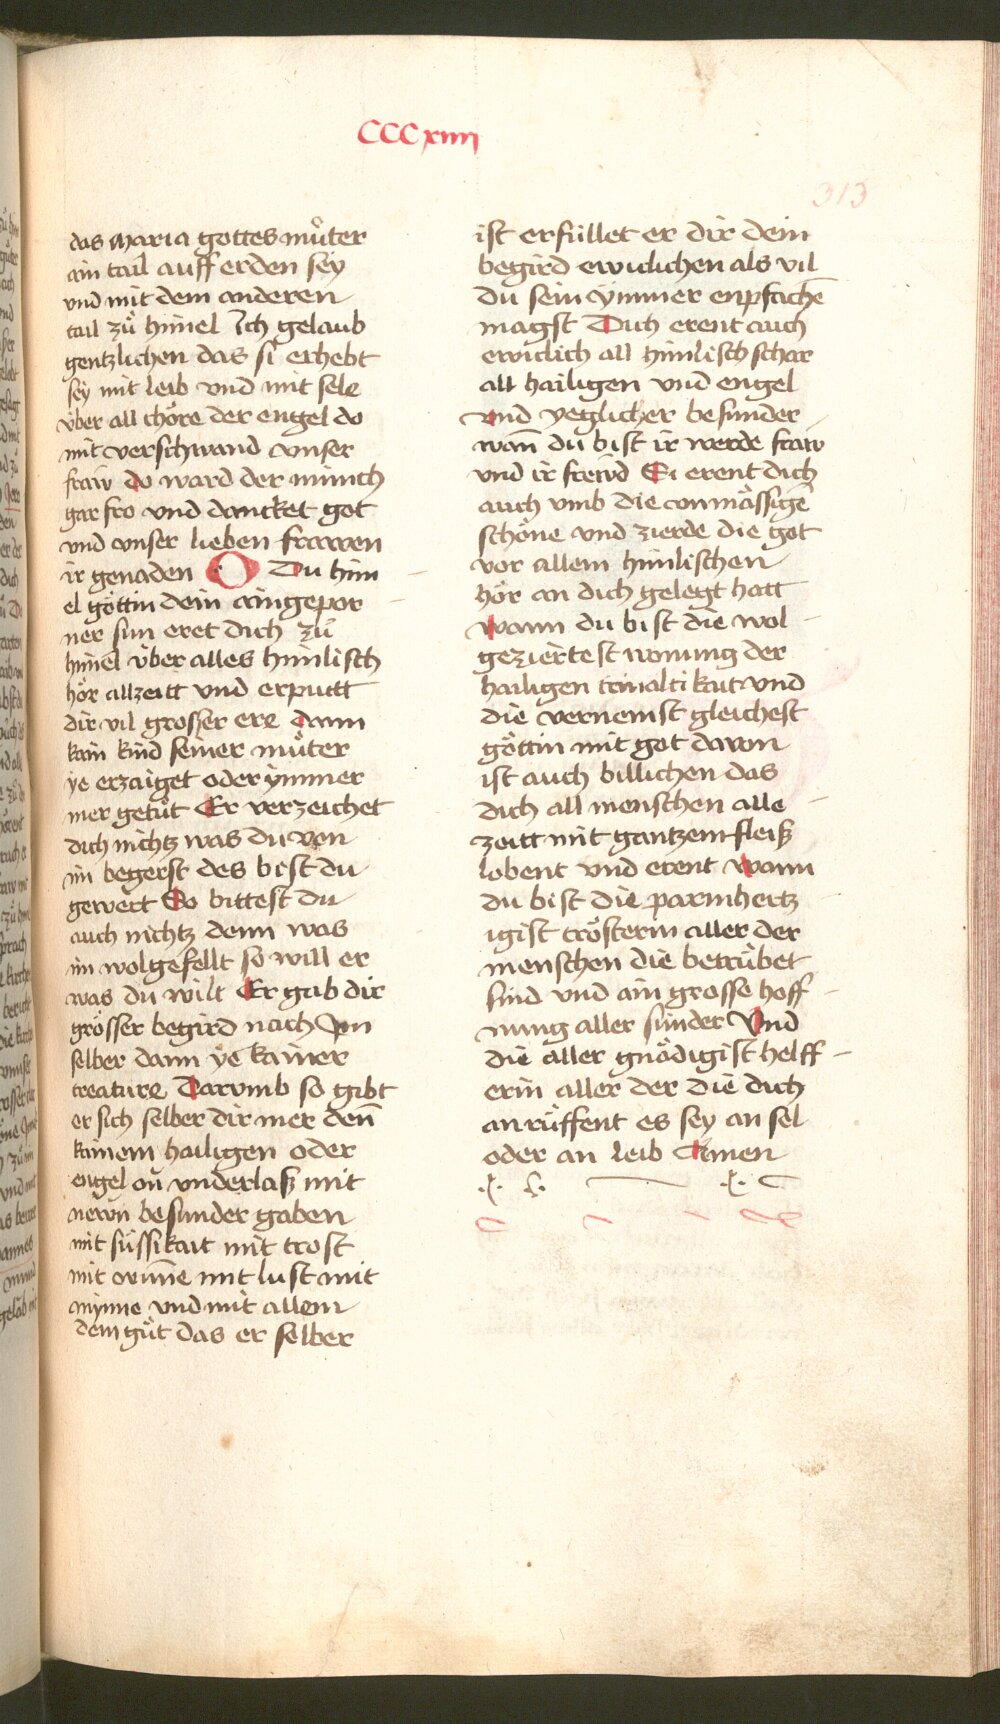 CCCxiiij
313
das maria gottes muͦter
ain tail auff erden sey
vnd mit dem anderen
tail zuͦ himel Ich gelaub
gentzlichen das si erhebt
sey mit leib vnd mit sele
über all chöre der engel do
mit verschwand vnser
fraw do ward der münch
gar fro vnd dancket got
vnd vnser lieben frawen
ir genaden O Du him
el göttin dein aingepor
ner sun eret dich zuͦ
himel über alles himlisch
hör allzeitt vnd erputt
dir vil grosser ere dann
kain kind seiner muͦter
ye erzaiget oder ymmer
mer getuͦt Er verzeichet
dich nichtz was du von
im begerst des bist du
gewert So bittest du
auch nichtz denn was
im wolgefellt so will er
was du wilt Er gab dir
grösser begird nach jm
selber dann ye kainer
creature Darvmb so gibt
er sich selber dir mer den̄
kainem hailigen oder
engel on vnderlasz mit
newn besunder gaben
mit süssikait mit trost
mit wun̄e mit lust mit
mynne vnd mit allem
dem guͦt das er selber
ist erfüllet er dir dein
begird ewiclichen als vil
du sein ymmer enpfachē
magst Dich erent auch
ewiclich all himlisch schar
all hailigen vnd engel
vnd yeglicher besunder
wan̄ du bist ir werde fraw
vnd ir frewd Si erent dich
auch vmb die vnmässigē
schöne vnd zierde die got
vor allem himlischen
hör an dich gelegt hatt
wann du bist die wol
geziertest wonung der
hailigen trinaltikait vnd
die vernemst gleichest
göttin mit got darvm
ist auch billichen das
dich all menschen alle
zeitt mit gantzem fleisz
lobent vnd erent wann
du bist die parmhertz
igist trösterin aller der
menschen die betrübet
sind vnd ain grosse hoff
nung aller sünder Vnd
die aller gnädigist helff
erin aller der die dich
anrüffent es sey an sel
oder an leib Amen